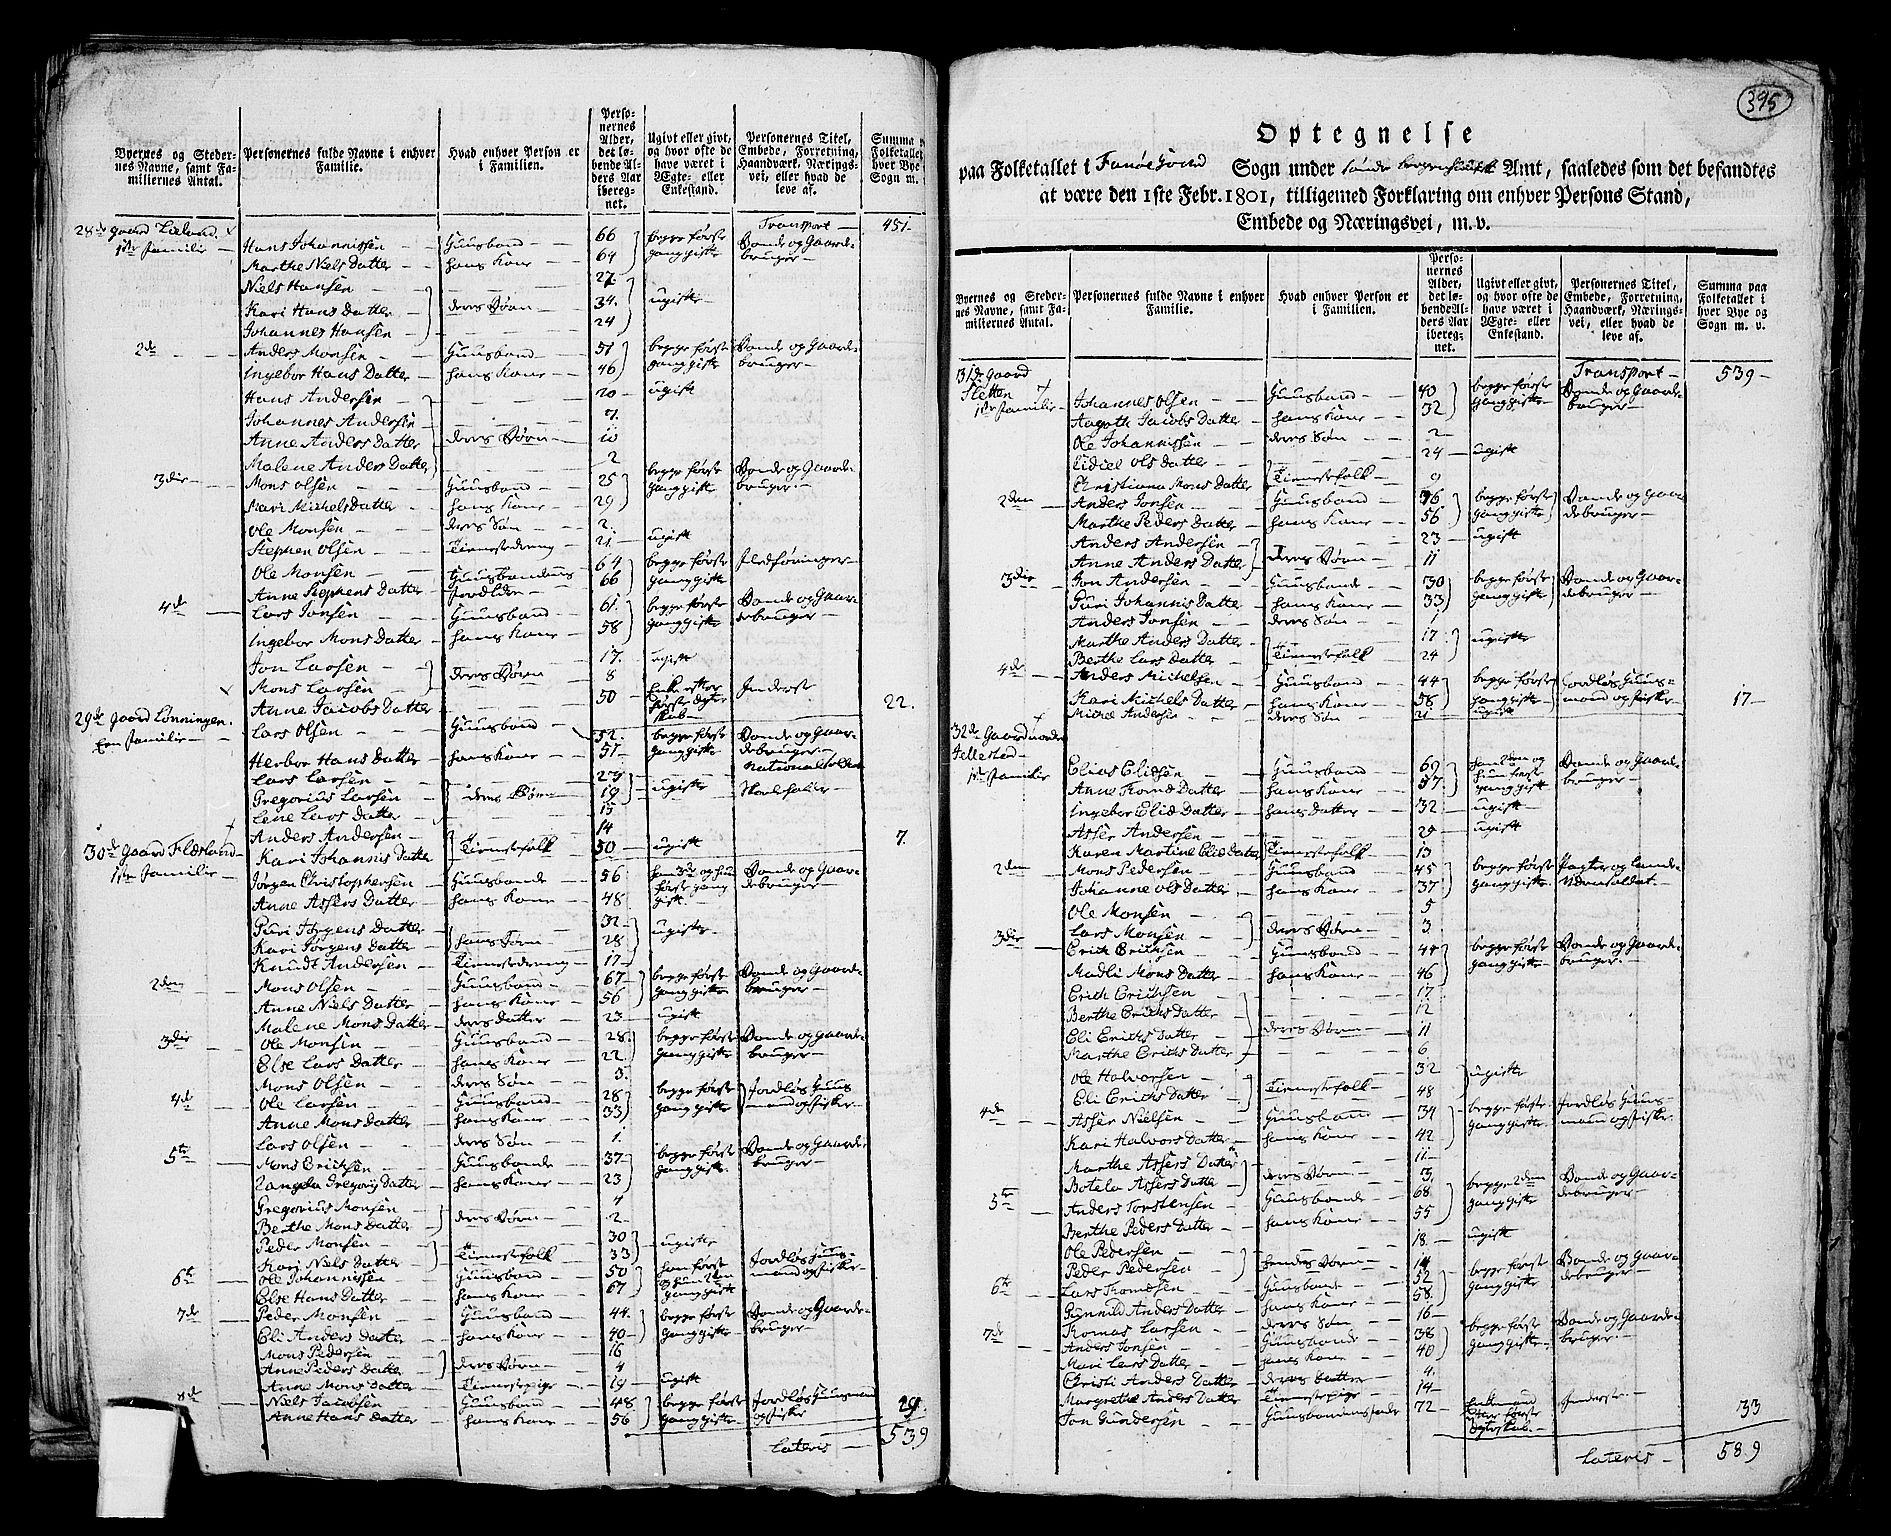 Byernes og Stedernes Navne, samt Familiernes Antal.
Personernes fulde Navne i enhver Familie.
Hvad enhver Person er i Familien.
Personernes Alder, det løbende Alders Aar iberegnet.
Ugivt eller givt, og hvor ofte de have været i Ægte- eller Enkestand.
Personernes Titel, Embede, Forretning, Haandværk, Næringsvei, eller hvad de leve af.
Summa Folketallet hver Bye Sogn m.
Transport — 451
28de gaard
1ste familie — Hans Johannissen — Huusbond — 66 begge første Bonde og Gaarde-
Marthe Niels Datter — hans Kone — 64 gang gifte bruger
Niels Hansen — 27
Kari Hans Datter — deres Børn — 34 ugift
Johannes Hansen — 24
2de — Anders Monsen — Huusbond — 51 begge første Bonde og Gaarde-
Ingebor Hans Datter — hans Kone — 46 gang gifte bruger
Hans Andersen — 20 ugift
Johannes Andersen — 7
Anne Anders Datter — deres Børn — 10
Malene Anders Datter — 2
3die — Mons Olsen — Huusbond — 25 begge første Bonde og Gaarde-
Mari Michels Datter — hans Kone — 29 gang gifte bruger
Ole Monsen — deres Søn — 2
Stephen Olsen — Tienestedreng — 21 ugift
Ole Monsen — Huusbondens — 64 begge første Fledføringer
Anne Stephens Datter — forældre — 66 gang gifte
4de — Lars Jonsen — Huusbond — 61 begge første Bonde og Gaar-
Ingebor Mons Datter — hans Kone — 58 gang gifte debruger
Jon Larsen — deres Børn — 17 ugift
Mons Larsen — 8
Anne Jacobs Datter — 50 Enke efter første Ægteskab Inderst — 22
29de gaard Lønningen
Een familie — Lars Olsen — Huusbond — 52 begge første Bonde og Gaar-
Herbor Hans Datter — hans Kone — 51 gang gifte debruger
Lars Larsen — 29 National Soldat
Gregorius Larsen — deres Børn — 19 ugifte
Lene Lars Datter — 15
Anders Andersen — Tienestefolk — 14
Kari Johannis Datter — 50 ugift — 7
30de gaard Flæsland
1ste familie — Jørgen Christophersen — Huusbonde — 56 ham 3de og hun første gang gift Bonde og Gaar-
Anne Assers Datter — hans Kone — 48 debruger
Guri Jørgens Datter — 32 ugifte
Kari Jørgens Datter — hans Børn — 28
Knudt Andersen — Tienestedreng — 17
2den — Mons Olsen — Huusbond — 67 begge første Bonde og Gaarde-
Anne Niels Datter — hans Kone — 56 gang gifte bruger
Malene Mons Datter — deres Datter — 23 ugift
3die — Ole Monsen — Huusbond — 28 begge første Bonde og Gaarde-
Else Lars Datter — hans Kone — 22 gang gifte bruger
Mons Olsen — deres Søn — 3
4de — Ole Larsen — Huusbond — 28 begge første Jordløs Huus-
Anne Mons Datter — hans Kone — 33 gang gifte mand og fisker
Lars Olsen — deres Søn — 1
5te — Mons Erichsen — Huusbonde — 37 begge første Bonde og Gaarde-
Gregorij Datter — hans Kone — 23 gang gifte bruger
Gregorius Monsen — 4
Berthe Mons Datter — deres Børn — 2
Peder Monsen — Tienestefolk — 30 ugifte
Kari Niels Datter — 33
6te — Ole Johannissen — Huusbond — 50 ham første og hun 2den gang gift Jordløs Huus-
Else Hans Datter — hans Kone — 67 mand og fisker
7de — Peder Monsen — Huusbond — 44 begge første Bonde og Gaarde-
Eli Anders Datter — hans Kone — 40 gang gifte bruger
Mons Pedersen — deres Børn — 16
Anne Peders Datter — 4
Anne Mons Datter — Tienestepige — 19 ugift
8de — Niels Jacobsen — Huusbond — 48 begge første Jordløs Huusmand
Anne Hans Datter — hans Kone — 56 gang gifte og fisker — 29
Lateris — 539
395
Optegnelse
paa Folketallet i Fanøe Sund Sogn under Søndr Bergenhuus Amt, saaledes som det befandtes
at være den 1ste Febr. 1801, tilligemed Forklaring om enhver Persons Stand,
Embede og Næringsvei, m. v.
Byernes og Stedernes Navne, samt Familiernes Antal.
Personernes fulde Navne i enhver Familie.
Hvad enhver Person er i Familien.
Personernes Alder, det løbende Alders Aar iberegnet.
Ugivt eller givt, og hvor ofte de have været i Ægte- eller Enkestand.
Personernes Titel, Embede, Forretning, Haandværk, Næringsvei, eller hvad de leve af.
Summa paa Folketallet i hver Bye og Sogn m. v.
Transport — 539
31de gaard
Sletten
1ste familie — Johannes Olsen — Huusbond — 40 begge første Bonde og Gaarde-
Aagoth Jacobs Datter — hans Kone — 32 gang gifte bruger
Ole Johannissen — deres Søn — 2
Ols Datter — 24 ugift
Christiana Mons Datter — Tienestefolk — 9
2den — Anders Jonsen — Huusbond — 76 begge første Bonde og Gaar-
Marthe Peders Datter — hans Kone — 56 gang gifte debruger
Anders Andersen — 23 ugift
Anne Anders Datter — deres Børn — 11
3die — Jon Andersen — Huusbonde — 30 begge første Bonde og Gaar-
Guri Johannis Datter — hans Kone — 33 gang gifte debruger
Anders Jonsen — deres Søn — 1
Marthe Anders Datter — 17 ugifte
Berthe Lars Datter — Tienestefolk — 24
4de — Anders Michelsen — Huusbond — 44 begge første Jordløs Huus-
Kari Michels Datter — hans Kone — 58 gang gifte mand og fisker — 17
Michel Andersen — deres Søn — 21 ugift
32de Gaard
1ste familie — Elias Eliesen — Huusbond — 69 ham 2den og hun første gang gift Bonde og Gaarde-
Anne Knud Datter — hans Kone — 57 bruger
Ingebor Elie Datter — hans Datter — 32 ugift
Asser Andersen — 29 ugift
Karen Martine Elie Datter — Tienestefolk — 13
2den — Mons Pedersen — Huusbond — 45 begge første
Johanne Ols Datter — hans Kone — 37 gang gifte
Ole Monsen — 5
Lars Monsen — deres Børn — 3
3die — Erich Erichsen — Huusbond — 44 begge første Bonde og Gaarde-
Madli Mons Datter — hans Kone — 46 gang gifte bruger
Erich Erichsen — 17
Berthe Erichs Datter — 12
Eli Erichs Datter — deres Børn — 11
Marthe Erichs Datter — 6
Ole Halvorsen — 32 ugift
Eli Erichs Datter — Tienestefolk — 48
4de — Asser Nielsen — Huusbond — 34 begge første Jordløs Huus-
Kari Halvors Datter — hans Kone — 42 gang gifte mand og fisker
Marthe Assers Datter — 11
Botela Assers Datter — deres Børn — 3
5te — Anders Torstensen — Huusbonde — 68 begge 2den Bonde og Gaar-
Berthe Peders Datter — hans Kone — 55 gang gifte debruger
Ole Pedersen — 18 ugift
Peder Pedersen — hendes Børn — 14
6te — Lars Thomesen — Huusbonde — 52 begge første Bonde og Gaar-
Gunnild Anders Datter — hans Kone — 58 gang gifte debruger
Thomas Larsen — deres Søn — 16
7de — Anders Jonsen — Huusbonde — 38 begge første Bonde og Gaarde-
Mari Lars Datter — hans Kone — 40 gang gifte bruger
Christi Anders Datter — deres Datter — 4
Margrethe Anders Datter — Tienestepige — 14
Jon Gundersen — Huusbondens — 72 Enkemand efter første Ægteskab Inderste — 33
Lateris — 589